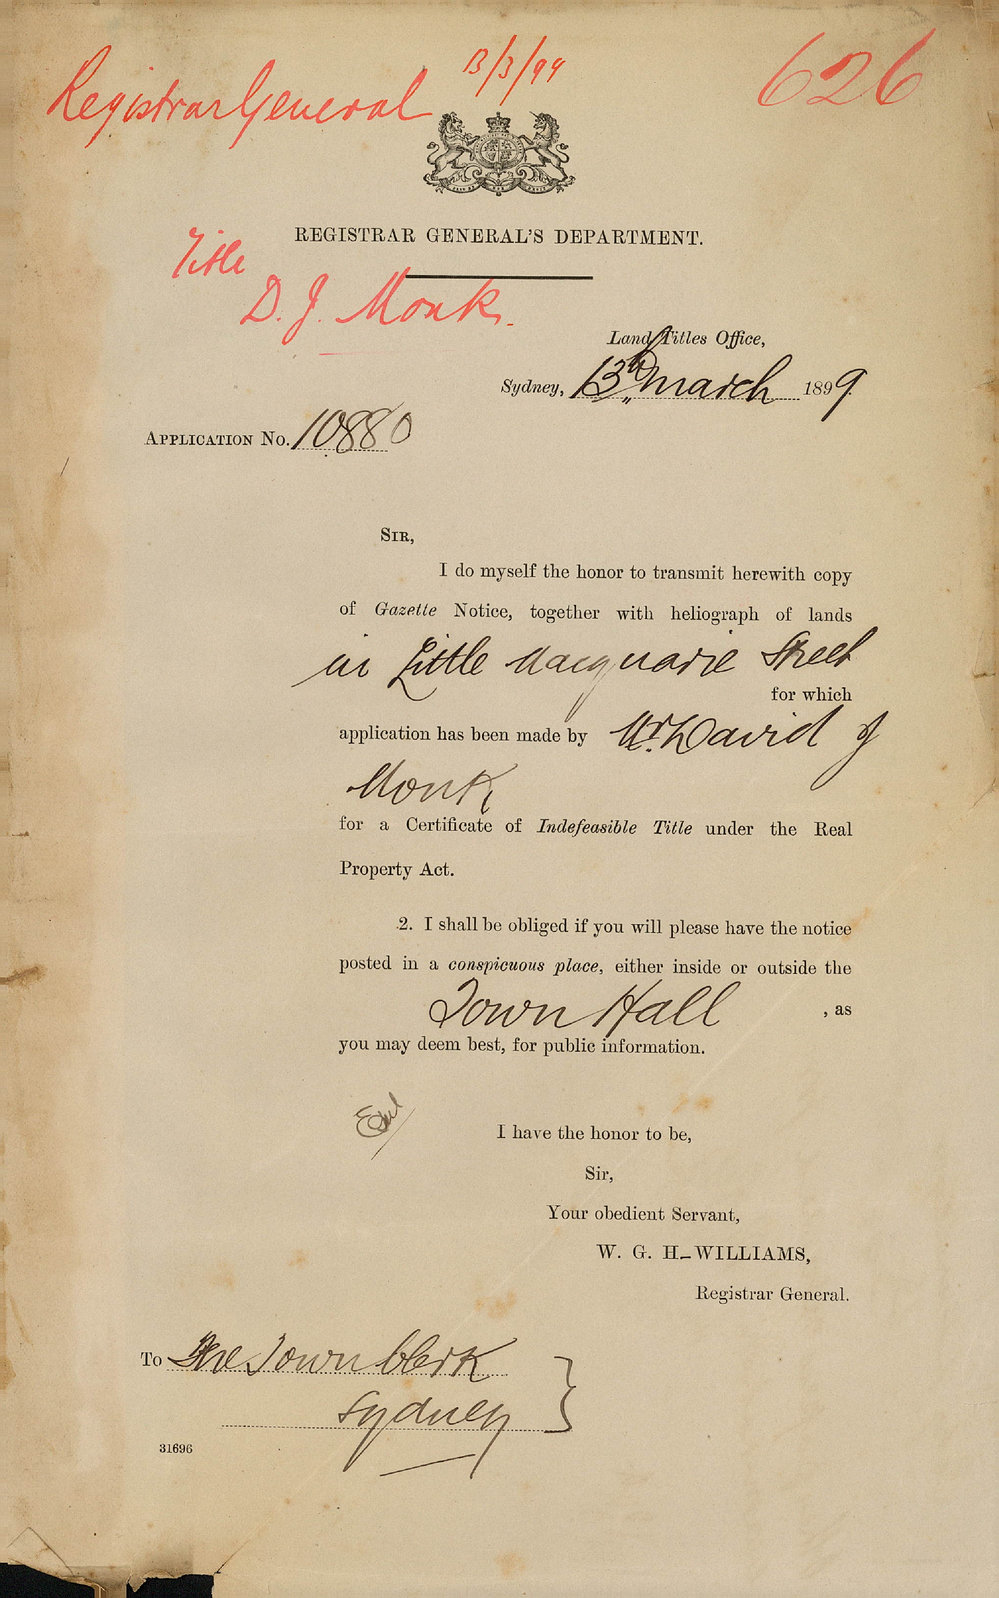 Registrar General 13/3/99
626
REGISTRAR GENERAL'S DEPARTMENT.
Title
D. J. Monk.
Land Titles Office,
Sydney, 13th March 1899.
APPLICATION No. 10880
SIR,
I do myself the honor to transmit herewith copy
of Gazette Notice, together with heliograph of lands
in Little Macquarie Street
for which
application has been made by Mr. David J
Monk
for a Certificate of Indefeasible Title under the Real
Property Act.
2. I shall be obliged if you will please have the notice
posted in a conspicuous place, either inside or outside the
Town Hall , as
you may deem best, for public information.
I have the honor to be,
Sir,
Your obedient Servant,
W. G. H-WILLIAMS,
Registrar General.
To The Town Clerk
Sydney
31696